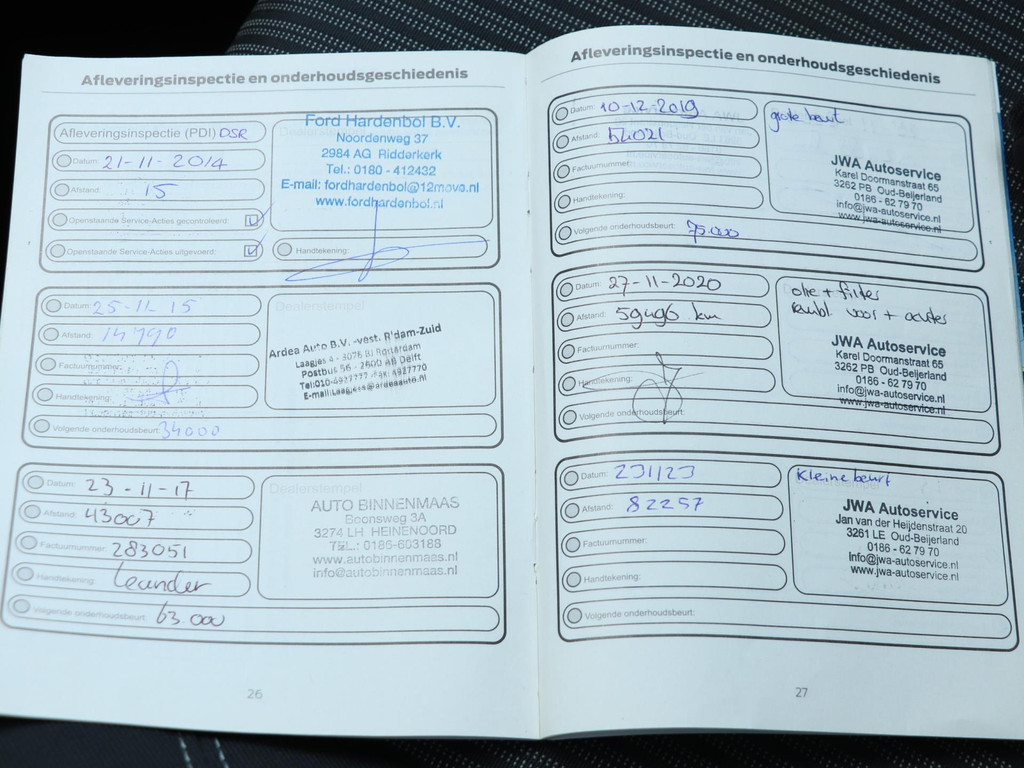 Afleveringsinspectie en onderhoudsgeschiedenis
Afleveringsinspectie (PDI) DSR
Datum: 21-11-2014
Afstand: 15
Openstaande Service-Acties gecontroleerd:
Openstaande Service-Acties uitgevoerd:
Ford Hardenbol B.V.
Noordenweg 37
2984 AG Ridderkerk
Tel.: 0180 - 412432
E-mail: fordhardenbol@12move.nl
www.fordhardenbol.nl
Handtekening:
Datum: 25-11-15
Afstand: 14790
Factuurnummer:
Handtekening:
Volgende onderhoudsbeurt: 34000
Dealerstempel
Ardea Auto B.V. -vest. R'dam-Zuid
Laagjes 4 - 3076 BJ Rotterdam
Postbus 56 - 2600 AB Delft
Tel:010-4927777 -Fax: 4927770
E-mail:Laagjes@ardeaauto.nl
Datum: 23-11-17
Afstand: 43007
Factuurnummer: 283051
Handtekening: Leander
Volgende onderhoudsbeurt: 63.000
Dealerstempel
AUTO BINNENMAAS
Boonsweg 3A
3274 LH HEINENOORD
TEL.: 0186-603188
www.autobinnenmaas.nl
info@autobinnenmaas.nl
26
Afleveringsinspectie en onderhoudsgeschiedenis
Datum: 10-12-2019
Afstand: 54021
Factuurnummer:
Handtekening:
Volgende onderhoudsbeurt: 75.000
grote beurt
JWA Autoservice
Karel Doormanstraat 65
3262 PB Oud-Beijerland
0186 - 62 79 70
info@jwa-autoservice.nl
www.jwa-autoservice.nl
Datum: 27-11-2020
Afstand: 59496 km
Factuurnummer:
Handtekening:
Volgende onderhoudsbeurt:
olie + filter
voor + achter
JWA Autoservice
Karel Doormanstraat 65
3262 PB Oud-Beijerland
0186 - 62 79 70
info@jwa-autoservice.nl
www.jwa-autoservice.nl
Datum: 231123
Afstand: 82257
Factuurnummer:
Handtekening:
Volgende onderhoudsbeurt:
Kleine beurt
JWA Autoservice
Jan van der Heijdenstraat 20
3261 LE Oud-Beijerland
0186 - 62 79 70
Info@jwa-autoservice.nl
www.jwa-autoservice.nl
27